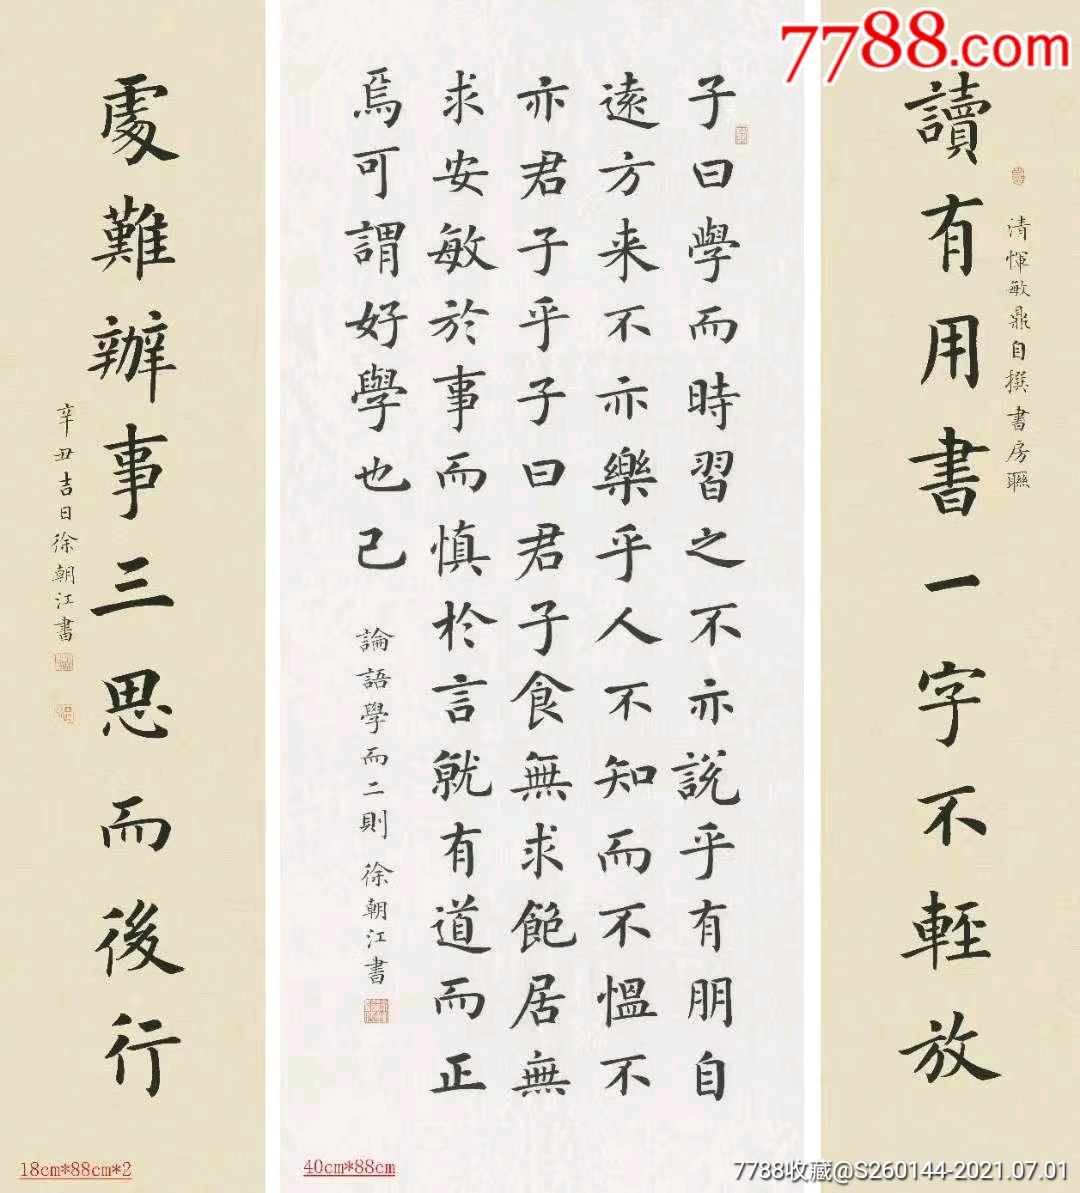 7788.com
讀有用書一字不輕放
清惲敏鼎自撰書房聯
子曰學而時習之不亦說乎有朋自
遠方来不亦樂乎人不知而不慍不
亦君子乎子曰君子食無求飽居無
求安敏於事而慎於言就有道而正
焉可謂好學也已
論語學而二則 徐朝江書
處難辦事三思而後行
辛丑吉日徐朝江書
18cm*88cm*2
40cm*88cm
7788收藏@S260144-2021.07.01